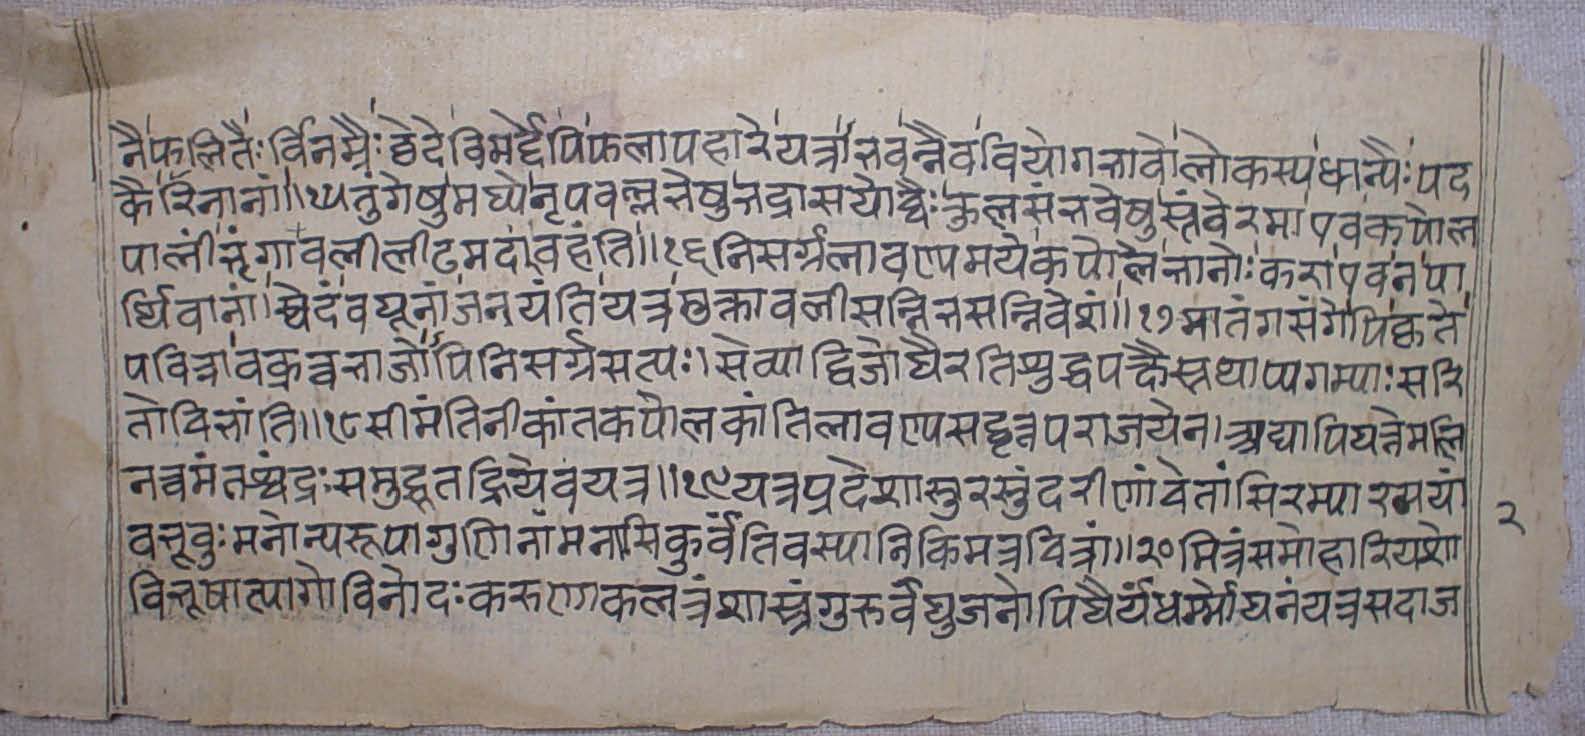 नैफलितैः र्विनम्रैः छेदेविमर्द्देपिफलापहारेयत्राभवन्नैववियोगभावोलोकस्पधान्पैः पद
कैरिनानां ॥१५ तुंगेषुमध्येनृपवल्लभेषुभद्रासयोद्यैः कुलसंभवेषुस्तंबेरमाएवकपोल
पालीं भृंगावलीलीढमदांवहंति ॥१६ निसर्ग्गलावएपमयेकपोलेभानोः कराएवनपा
र्थिवानां । स्वेदंवधूनां जनयंतियत्रमुक्तावलीसन्निभसन्निवेशं ॥१७ मातंगसंगेपिकृते
पवित्रावक्रत्वभाजोपिनिसर्ग्गसत्पः । सेव्याद्विजोघैरतिशुद्धपक्षैस्तथाप्यगम्पाः सरि
तोविभांति ॥१८ सीमंतिनीकांतकपोलकांतिलावएपसद्वृत्तपराजयेन । अद्यापियत्नेमलि
नत्वमंतश्चंद्रः समुद्भूतह्रियेवयत्र ॥१९ यत्रप्रदेशास्सुरसुंदरीणां चेतांसिरम्पारमयां
बभूवुः मनोन्यरूपागुणिनां मनांसिकुर्वंतिवस्पानिकिमत्रचित्रं ॥२० मित्रंसमोहारियशो
विभूषात्पागोविनोदः करुणाकलत्रंशास्त्रंगुरुर्वंधुजनोपिधैर्यंधर्म्मोधनंयत्रसदाज
२